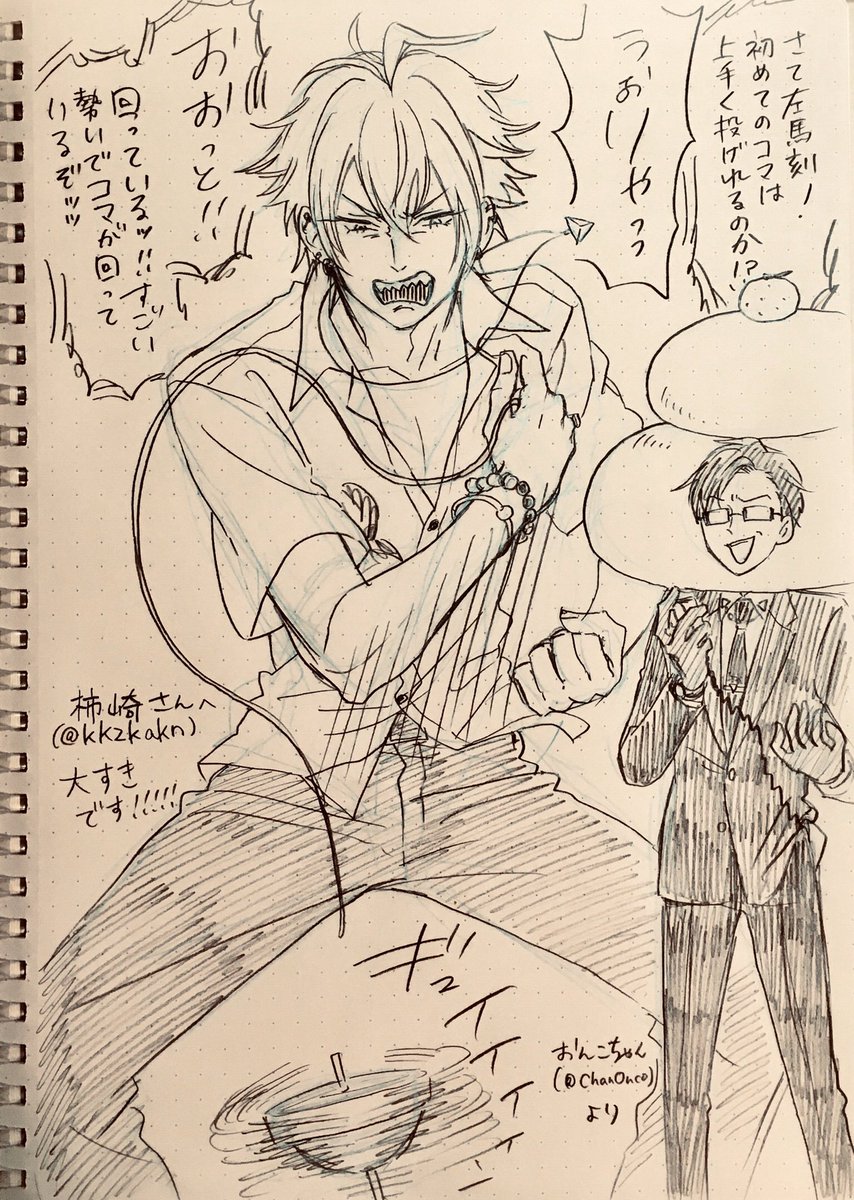 さて左馬刻！
初めてのコマは
上手く投げれるのか!?
うおりゃっっ
おおっと!!
回っているッ!!すごい
勢いでコマが回って
いるぞッッ
柿崎さんへ
(@kkzkakn)
大すき
です!!!!!
ギュイイイイン
おんこちゃん
(@ChanOnco)
より